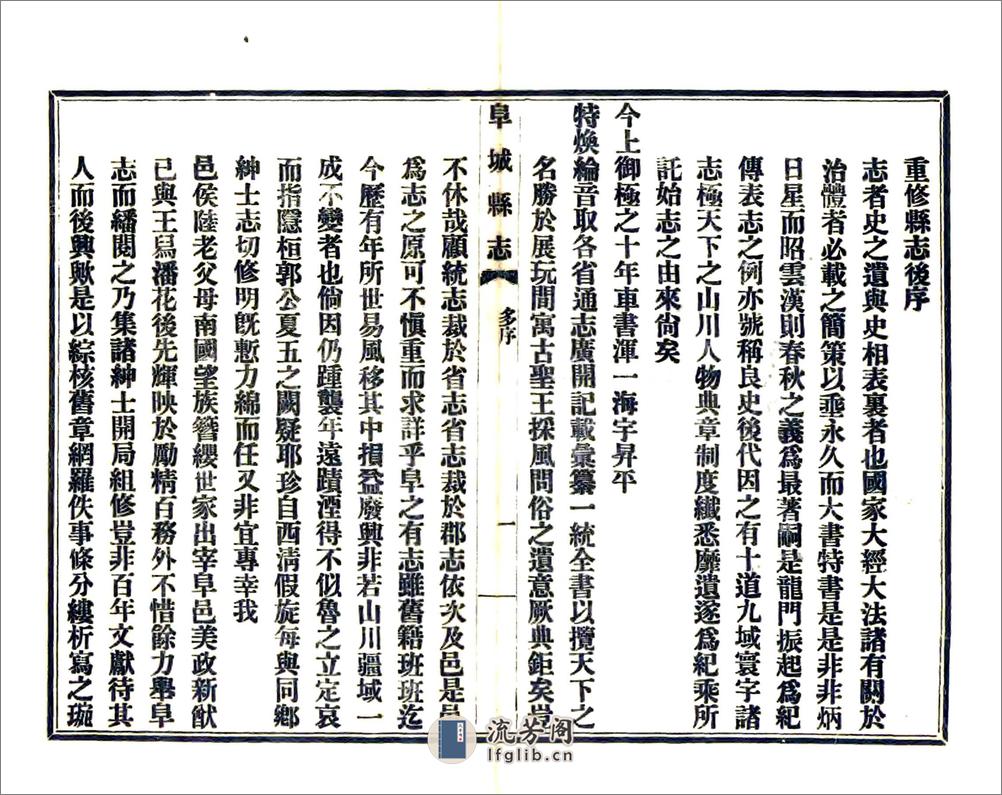 重修縣志後序
志者史之遺與史相表裏者也國家大經大法諸有關於
治體者必載之簡策以垂永久而大書特書是是非非炳
日星而昭雲漢則春秋之義爲最著嗣是龍門振起爲紀
傳表志之例亦號稱良史後代因之有十道九域寰宇諸
志極天下之山川人物典章制度纖悉靡遺遂爲紀乘所
託始志之由來尙矣
今上御極之十年車書渾一海宇昇平
特煥綸音取各省通志廣開記載彙纂一統全書以攬天下之
名勝於展玩間寓古聖王採風問俗之遺意厥典鉅矣豈
阜城縣志 序 一
不休哉顧統志裁於省志省志裁於郡志依次及邑是邑
爲志之原可不愼重而求詳乎阜之有志雖舊籍班班迄
今歷有年所世易風移其中損益廢興非若山川疆域一
成不變者也倘因仍踵襲年遠蹟湮得不似魯之立定哀
而指隱桓郭公夏五之闕疑耶珍自西淸假旋每與同鄉
紳士志切修明旣慙力綿而任又非宜專幸我
邑侯陸老父母南國望族簪纓世家出宰阜邑美政新猷
已與王舃潘花後先輝映於勵精百務外不惜餘力舉阜
志而繙閱之乃集諸紳士開局組修豈非百年文獻待其
人而後興歟是以綜核舊章網羅佚事條分縷析寫之琬
流芳阁
lfglib.cn